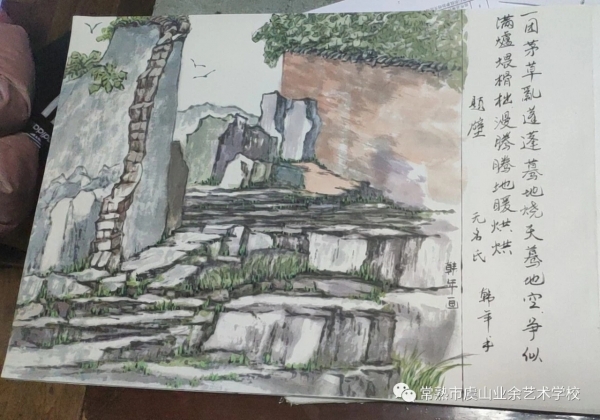 一团茅草乱蓬蓬蓦地烧天蓦地空争似
满爐煨榾柮漫腾腾地暖烘烘
题壁
无名氏
韩年书
韩年画
常熟市虞山业余艺术学校